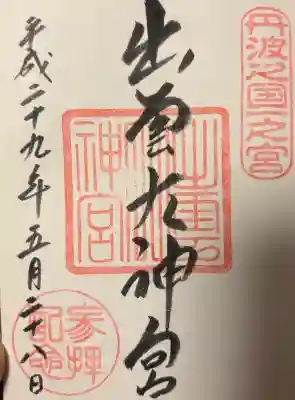 丹波之国一之宮
出雲大神宮
平成二十九年五月二十八日
出雲大神宮
参拝記念